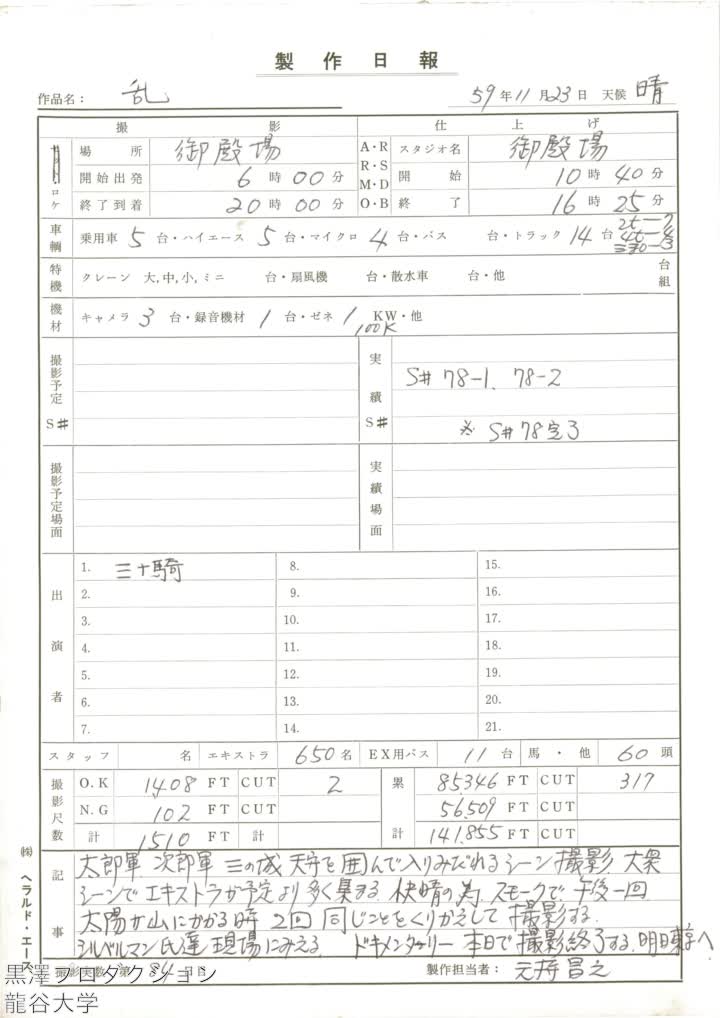 製作日報
作品名： 乱 59年11月23日 天候 晴
撮影 仕上げ
ロケ 場所 御殿場 A・R R・S M・D O・B スタジオ名 御殿場
開始出発 6時00分 開始 10時40分
終了到着 20時00分 終了 16時25分
車輌 乗用車 5 台・ハイエース 5 台・マイクロ 4 台・バス 台・トラック 14 台
特機 クレーン 大,中,小,ミニ 台・扇風機 台・散水車 台・他 台組
機材 キャメラ 3 台・録音機材 1 台・ゼネ 1 KW・他
100K
撮影予定 S# 実績 S#
S# 78-1、78-2
※ S#78定3
撮影予定場面 実績場面
出演者
1. 三十騎 8. 15.
2. 9. 16.
3. 10. 17.
4. 11. 18.
5. 12. 19.
6. 13. 20.
7. 14. 21.
スタッフ 名 エキストラ 650名 EX用バス 11台 馬・他 60頭
撮影尺数 O.K 1408 FT CUT 2 累計 85,346 FT CUT 317
N.G 102 FT CUT 56,509 FT CUT
計 1510 FT 計 141,855 FT CUT
記事
太郎軍 次郎軍 三の城 天守を囲んで入りみだれるシーン撮影 大衆
シーンでエキストラが予定より多く集まる 快晴の為 スモークで 午後一回
太陽が山にかかる時 2回 同じことをくりかえして撮影する
シルベルマン氏達 現場にみえる ドキメンタリー 本日で撮影終了する。明日東京へ
撮影実数 第 84 日目 製作担当者：
㈱ ヘラルド・エース
黒澤プロダクション
龍谷大学